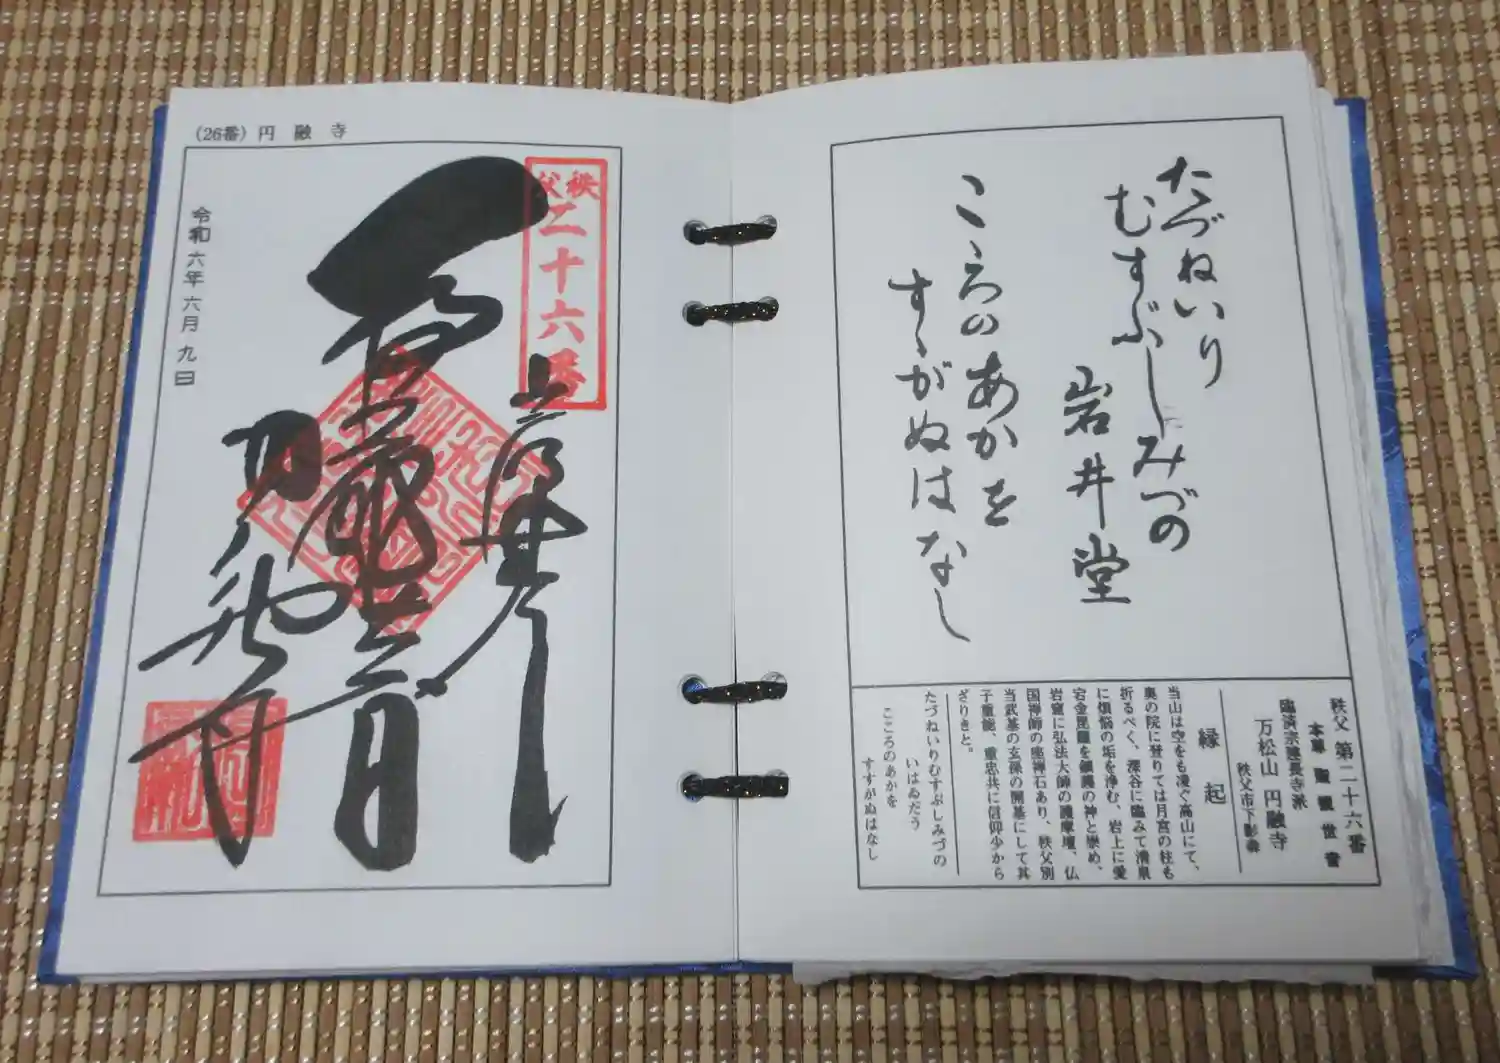 (26番) 円融寺
令和六年六月九日
秩父
二十六番
奉拝
円融寺
たづねいり
むすぶしみづの
岩井堂
こゝろのあかを
すゝがぬはなし
秩父 第二十六番
本尊 聖観世音
臨済宗建長寺派
万松山 円融寺
秩父市下影森
縁起
当山は空をも凌ぐ高山にて、
奥の院に登りては月宮の柱も
折るべく、深谷に臨みて清泉
に煩悩の垢を浄む、岩上に愛
宕金毘羅を鎮護の神と崇め、
岩窟に弘法大師の護摩壇、仏
国禅師の座禅石あり、秩父別
当武基の玄孫の開基にして其
子重能、重忠共に信仰少から
ざりきと。
たづねいりむすぶしみづの
いはゐだう
こころのあかを
すすがぬはなし